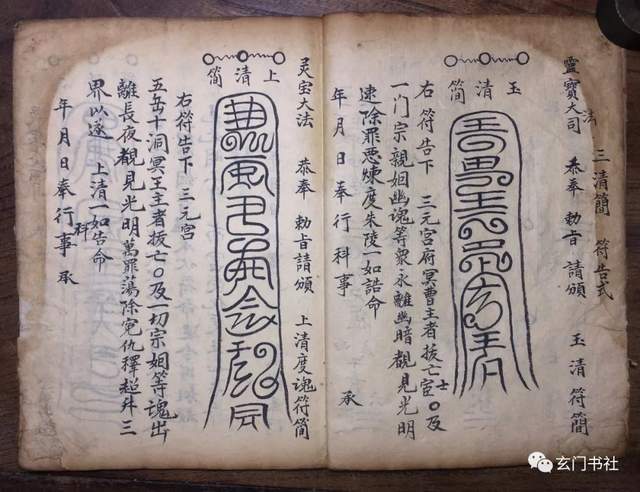 三清簡 符告式
靈寶大法司 恭奉 勅旨請頒 玉清符簡
玉清簡
右符告下 三元宮府冥曹主者拔亡官士〇及
一门宗親姻幽魂等众永離幽暗觀見光明
速除罪惡煉度朱陵一如誥命
年月日奉行科事 承
灵宝大法 恭奉 勅旨請頒 上清度魂符簡
上清简
右符告下 三元宮
五五十洞冥王主者拔亡〇及一切宗姻等魂出
離長夜觀見光明萬罪蕩除冤仇釋
三
界以遂 上清一如告命
年月日奉行科事 承
玄门书社